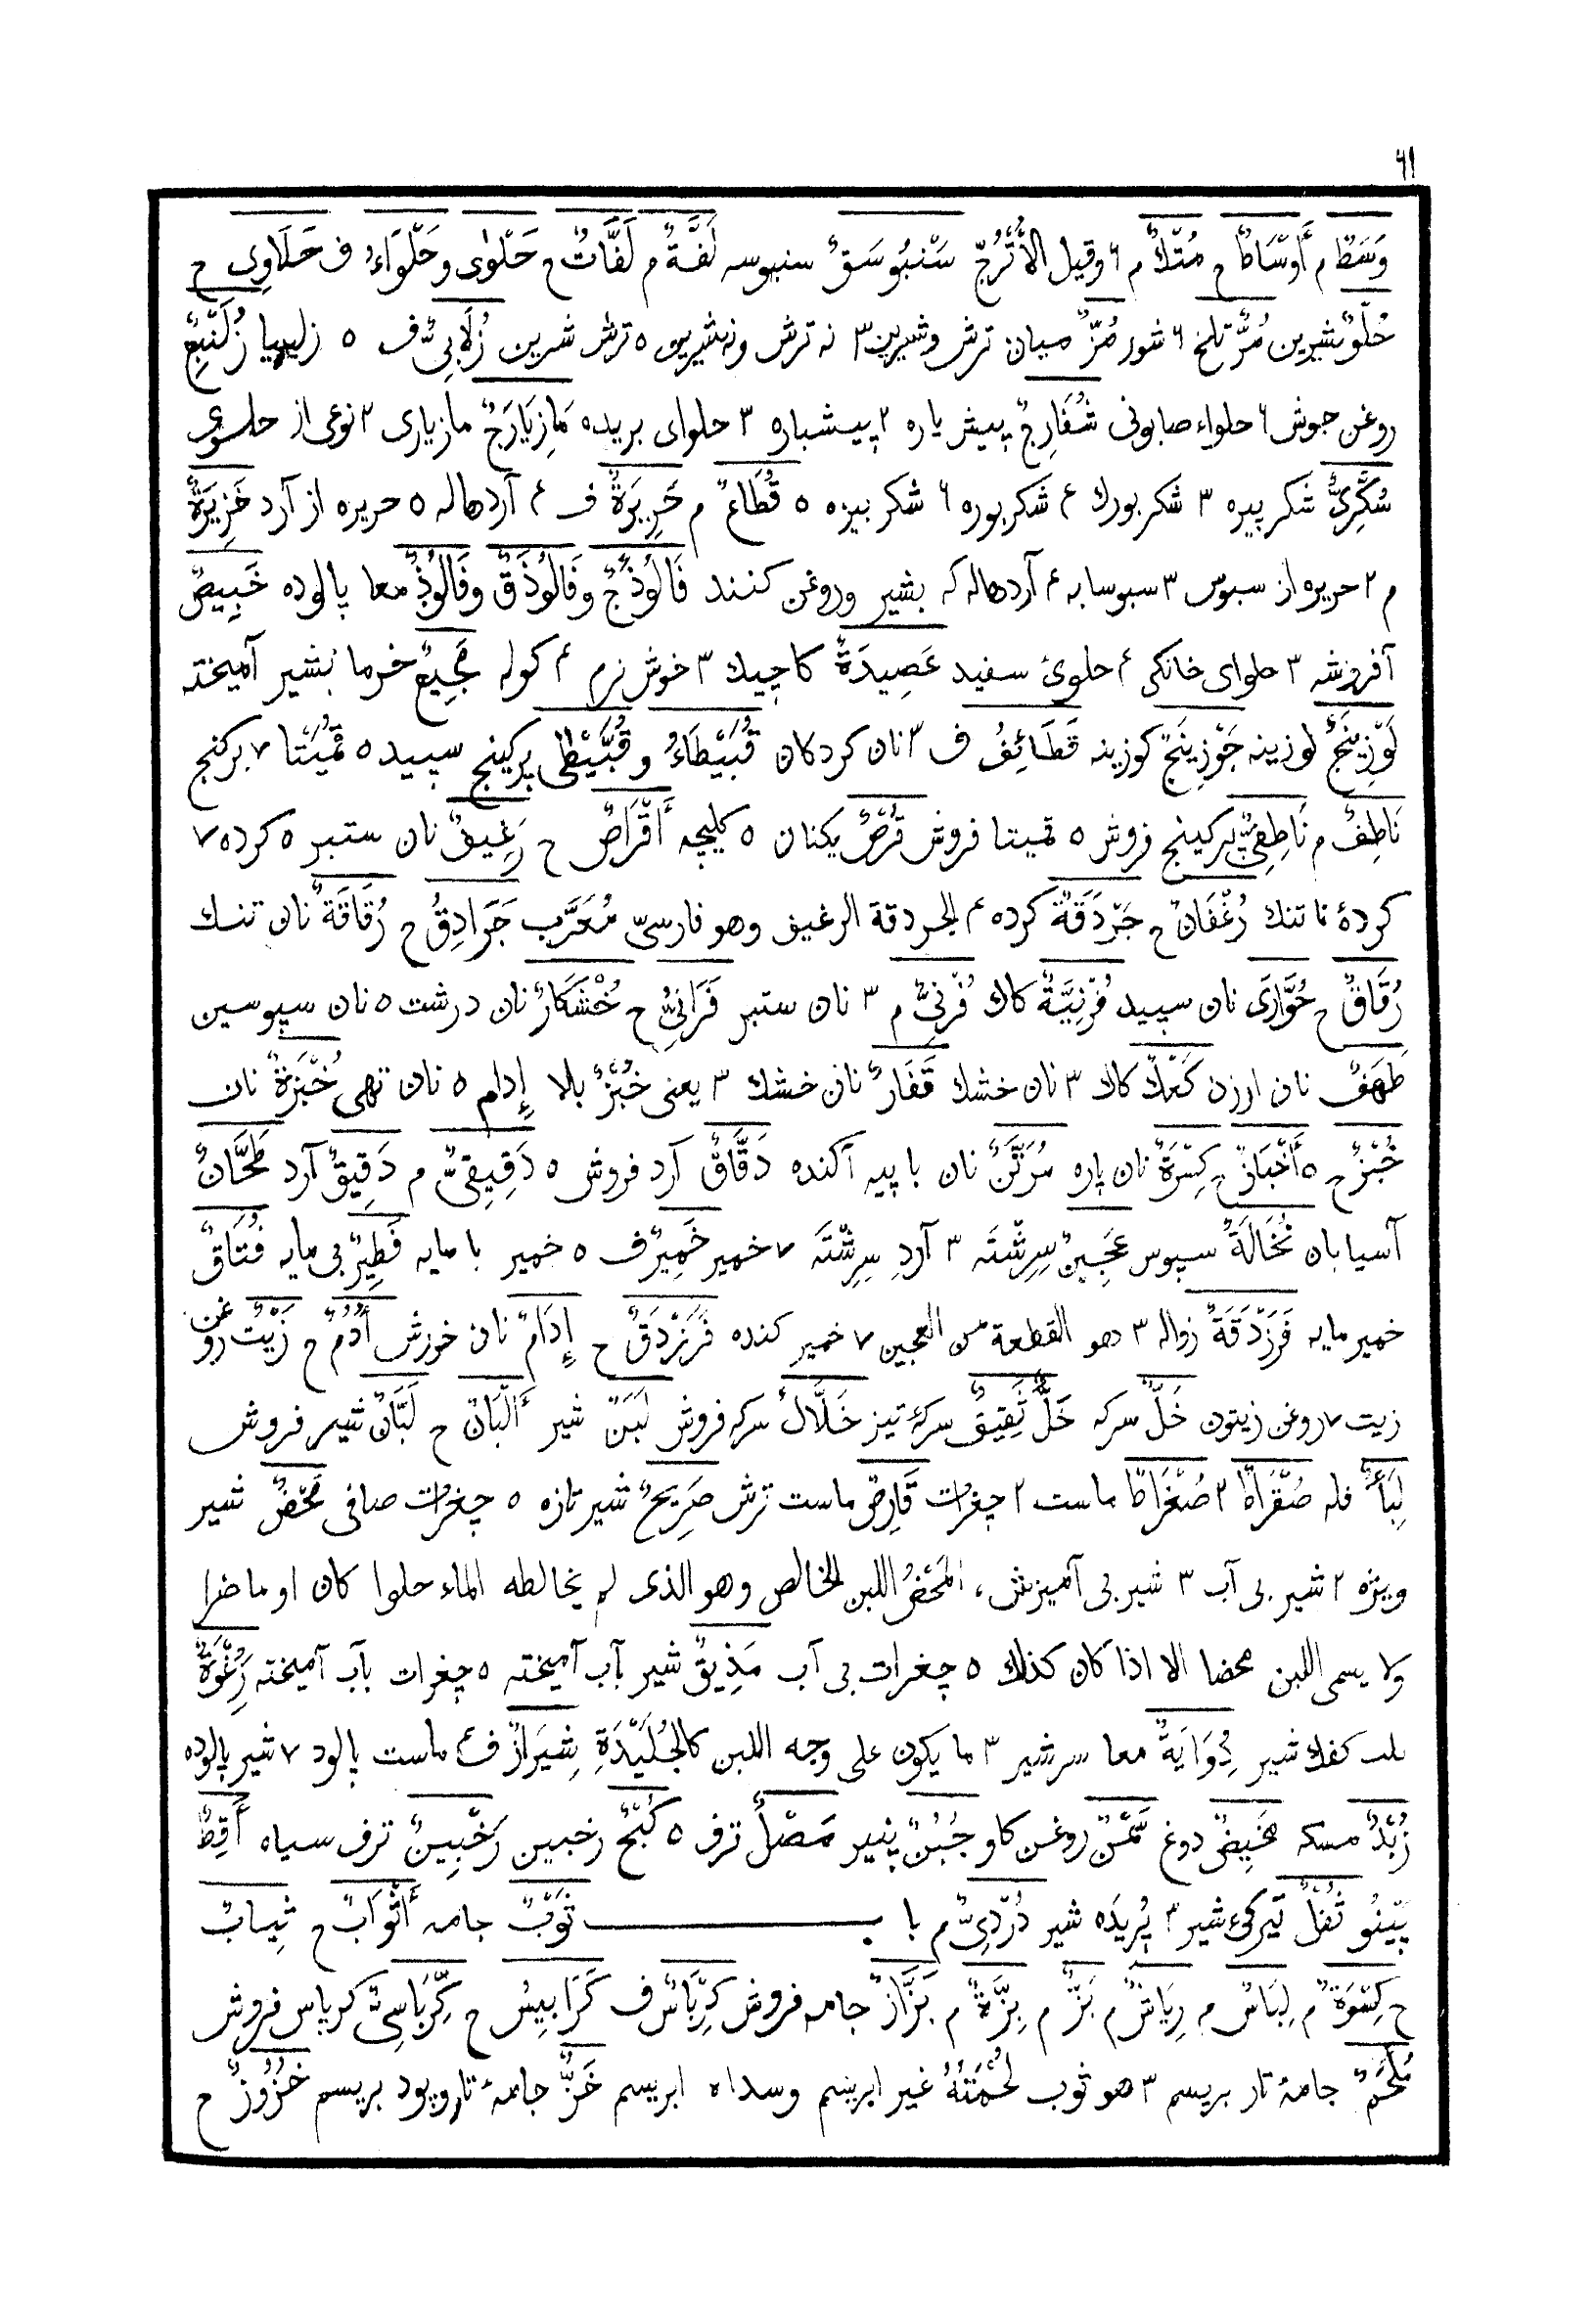 ۶۱
وَسَطٌ م أَوْسَاطٌ ح مُتْكٌ م ۶ وقيل الأُتْرُجّ سَنْبُوسَقٌ سنبوسه لَفَّةٌ م لَفَّاتٌ ح حَلْوٰى وحَلْوَاءُ ف حَلَاوِى ح
حُلْوٌ شيرين مُرٌّ تلخ ۶ شور مُزٌّ ميان ترش وشيرين ۳ نه ترش ونه شيرين ۵ ترش شرين زُلَابِىٌّ ف ۵ زليبيا زُلَنْبِعٌ
روغن جوش ۶ حلواء صابونى شُفَارِجٌ پيش ياره ۲ پيشباره ۳ حلواى بريده مَازِيَارَجٌ مازيارى ۲ نوعى از حلوى
سُكَّرِىٌّ شكر پيره ۳ شكر بورك ۴ شكر بوره ۶ شكر بيزه ۵ قُطَاعٌ م حَرِيرَةٌ ف ۴ آردهاله ۵ حريره از آرد خَزِيرَةٌ
م ۲ حريره از سبوس ۳ سبوسابه ۴ آردهاله كه بشير وروغن كنند فَالُوذَجٌ وفَالُوذَقٌ وفَالُوذٌ معا پالوده خَبِيصٌ
آفروشه ۳ حلواى خانكى ۴ حلوئ سفيد عَصِيدَةٌ كاچيك ۳ خوش نرم ۴ كوله مَجِيعٌ خرما بشير آميخته
لَوْزِينَجٌ لوزينه جَوْزِينَجٌ كوزينه قَطَائِفُ ف ۳ نان كردكان قُبَيْطَاءُ وقُبَّيْطٰى پركينج سپيد ۵ قُبَّيْتَا ۷ بركنج
نَاطِفٌ م نَاطِفِىٌّ پركينج فروش ۵ قبيتا فروش قُرْصٌ يكنان ۵ كليچه أَقْرَاصٌ ح رَغِيفٌ نان ستبر ۵ كرده ۷
كردهٔ نا تنك رُغْفَانٌ ح جَرْدَقَةٌ كرده ۴ الجردقة الرغيف وهو فارسىّ مُعَرَّب جَرَادِقُ ح رُقَاقَةٌ نان تنك
رُقَاقٌ ح حُوَّارَى نان سپيد فُرْنِيَّةٌ كاك فُرْنِىٌّ م ۳ نان ستبر فَرَانِىُّ ح خُشْكَارٌ نان درشت ۵ نان سبوسين
طَهَفٌ نان ارزن كَعْكٌ كاك ۳ نان خشك قَفَارٌ نان خشك ۳ يعنى خُبْزٌ بلا إِدام ۵ نان تهى خُبْزَةٌ نان
خُبْزٌ ح ۵ أَخْبَازٌ ح كِسْرَةٌ نان پاره مُرَتَّنٌ نان با پيه آكنده دَقَّاقٌ آرد فروش ۵ دَقِيقِىٌّ م دَقِيقٌ آرد طَحَّانٌ
آسيابان نُخَالَةٌ سپوس عَجِينٌ سِرِشْتَه ۳ آردِ سِرِشْتَه ۷ خمير خَمِيرٌ ف ۵ خمير با مايه فَطِيرٌ بى مايه فُتَاقٌ
خمير مايه فَرَزْدَقَةٌ زواله ۳ هو القطعة من العجين ۷ خمير كنده فَرَزْدَقٌ ح إِدَامٌ نان خورش أُدُمٌ ح زَيْتٌ روغن
زيت ۷ روغن زيتون خَلٌّ سركه خَلٌّ ثَقِيفٌ سركهٔ تيز خَلَّالٌ سركه فروش لَبَنٌ شير أَلْبَانٌ ح لَبَّانٌ شير فروش
لِبَأٌ فله صُقْرَاطٌ ۲ صُغْرَاطٌ ماست ۲ چغرات قَارِصٌ ماست ترش صَرِيحٌ شير تازه ۵ چغرات صافى مَحْضٌ شير
ويژه ۲ شير بى آب ۳ شير بى آميزش، المَحْضُ اللبن الخالص وهو الذى لم يخالطه الماء حلوا كان او حامضا
ولا يسمى اللبن محضا الا اذا كان كذلك ۵ چغرات بى آب مَذِيقٌ شير بآب آميخته ۵ چغرات بآب آميخته رُِغْوَةٌ
كفك شير دُِوَايَةٌ معا سرشير ۳ ما يكون على وجه اللبن كالجُلَيْدَةِ شِيرَازٌ ف ۴ ماست پالود ۷ شير پالوده
زُبْدٌ مسكه مَخِيضٌ دوغ سَمْنٌ روغن كاو جُبُنٌ پنير مَصْلٌ ترف ۵ كُبْحٌ رخبين رَخْبِينٌ ترف سياه أَقِطٌ
پِينُو ثُفْلٌ تيركىء شير ۳ پُرِيدَه شير دُرْدِىٌّ م باب ثَوْبٌ جامه أَثْوَابٌ ح ثِيَابٌ
ح كِسْوَةٌ م لِبَاسٌ م رِيَاشٌ م بَزٌّ م بِزَّةٌ م بَزَّازٌ جامه فروش كِرْبَاسٌ ف كَرَابِيسُ ح كِرْبَاسِىٌّ كرپاس فروش
مُلْحَمٌ جامهٔ تار بريسم ۳ هو ثوب لُحْمَتُهُ غير ابريسم وسداه ابريسم خَزٌّ جامهٔ تاروپود بريسم خُزُوزٌ ح